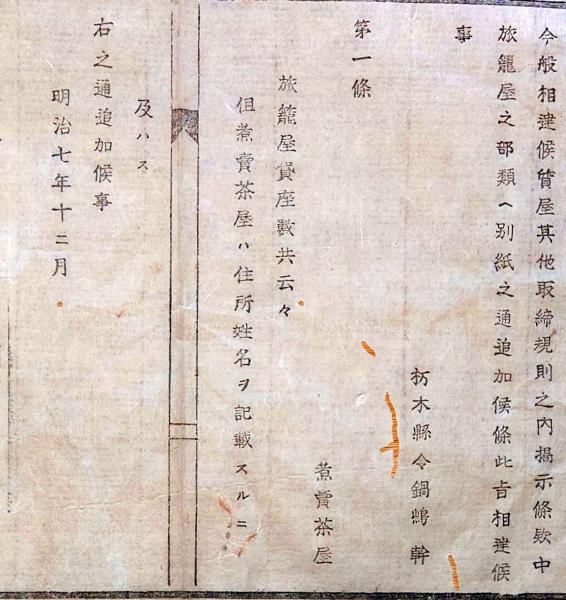 今般相達候貸屋其他取締規則之内揭示條欵中
旅籠屋之部類ヘ別紙之通追加候條此旨相達候
事
朽木縣令鍋嶋 幹
第一條
煮賣茶屋
旅籠屋貸座數共云々
但煮賣茶屋ハ住所姓名ヲ記載スルニ
及ハス
右之通追加候事
明治七年十二月